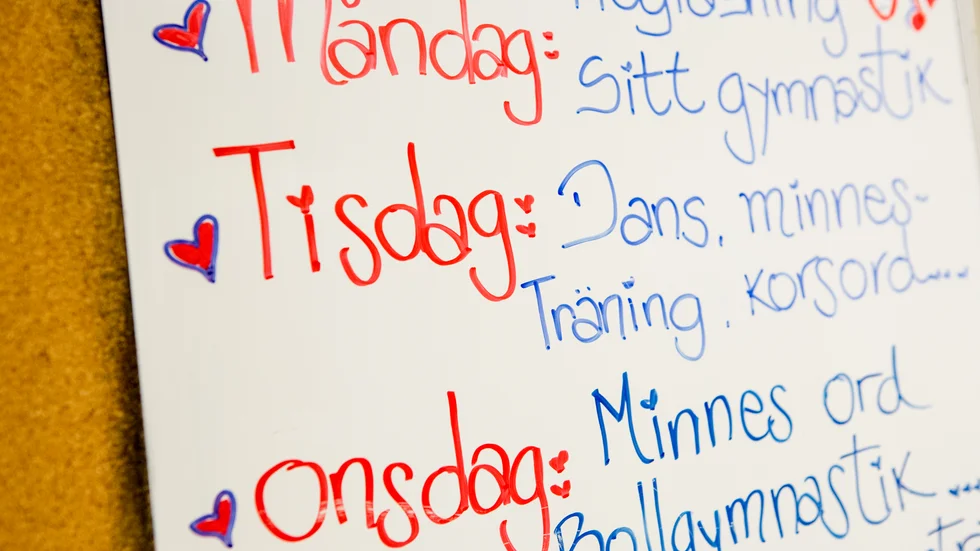 Måndag: Högläsning
Sitt gymnastik
Tisdag: Dans, minnes-
Träning, korsord....
Onsdag: Minnes ord
Bollgymnastik...